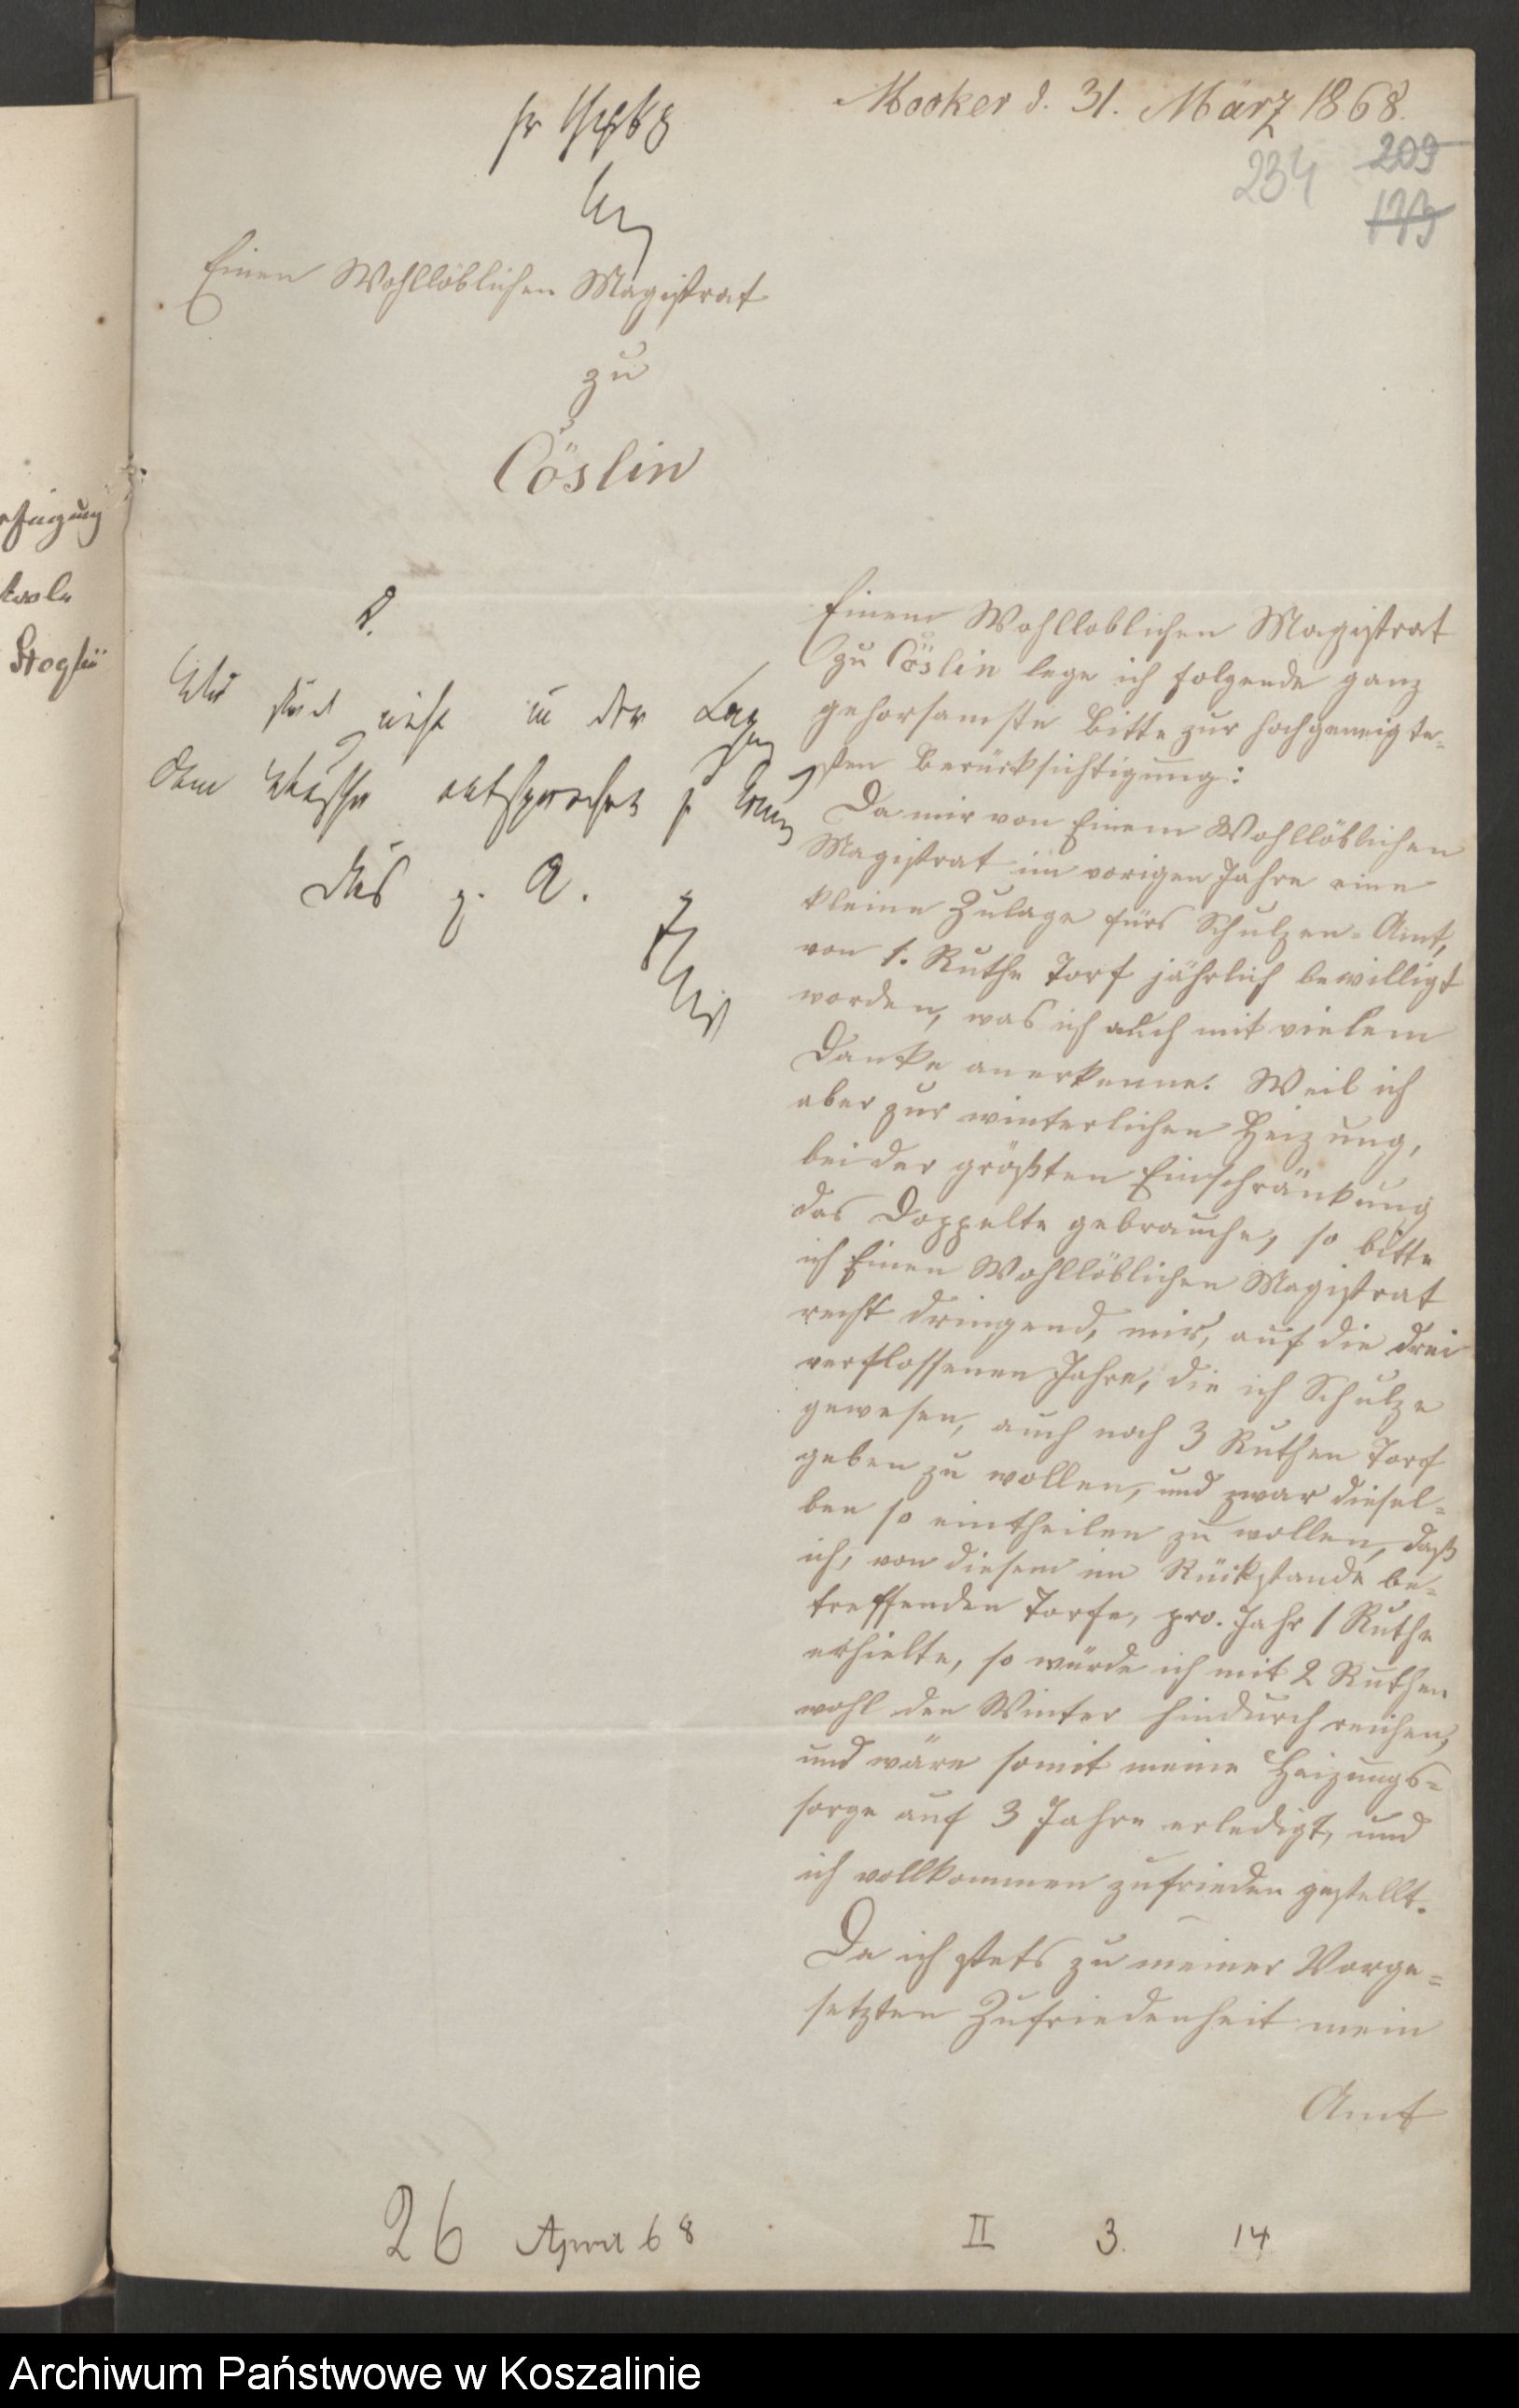 Mocker d. 31. März 1868.
209
234
173
Einen Wohllöblichen Magistrat
zu
Cöslin
Einem Wohlloblichen Magistrat
zu Cöslin lege ich folgende ganz
gehorsamste Bitte zur hochgeneigte=
sten Berücksichtigung:
Da mir von Einem Wohllöblichen
Magistrat im vorigen Jahre eine
kleine Zulage fürs Schulzen=Amt,
von 1. Ruthe Torf jährlich bewilligt
worden, was ich auch mit vielem
Danke anerkenne. Weil ich
aber zur winterlichen Heizung,
bei der größten Einschränkung
das Doppelte gebrauche, so bitte
ich Einen Wohllöblichen Magistrat
recht dringend, mir, auf die drei
verflossenen Jahre, die ich Schulze
gewesen, auch noch 3 Ruthen Torf
geben zu wollen, und zwar diesel=
ben so eintheilen zu wollen, daß
ich, von diesem im Rückstande be=
treffenden Torfe, pro. Jahr 1 Ruthe
erhielte, so würde ich mit 2 Ruthen
wohl den Winter hindurch reichen,
und wäre somit meine Heizungs=
sorge auf 3 Jahre erledigt, und
ich vollkommen zufrieden gestellt.
Da ich stets zu meiner Vorge=
setzten Zufriedenheit mein
Amt
R.
Wir sind nicht in der Lage
dem Wunsche entsprechen zu können
Der p. A.
26 April 68
II 3. 14
Archiwum Państwowe w Koszalinie